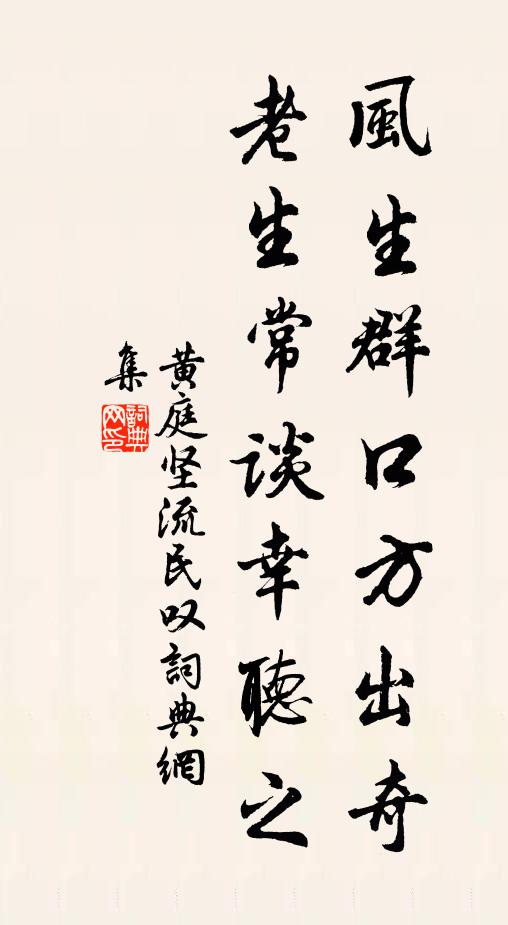 風生群口方出奇
老生常談幸聽之
黄庭坚流民叹詞典網
集
詞典網印